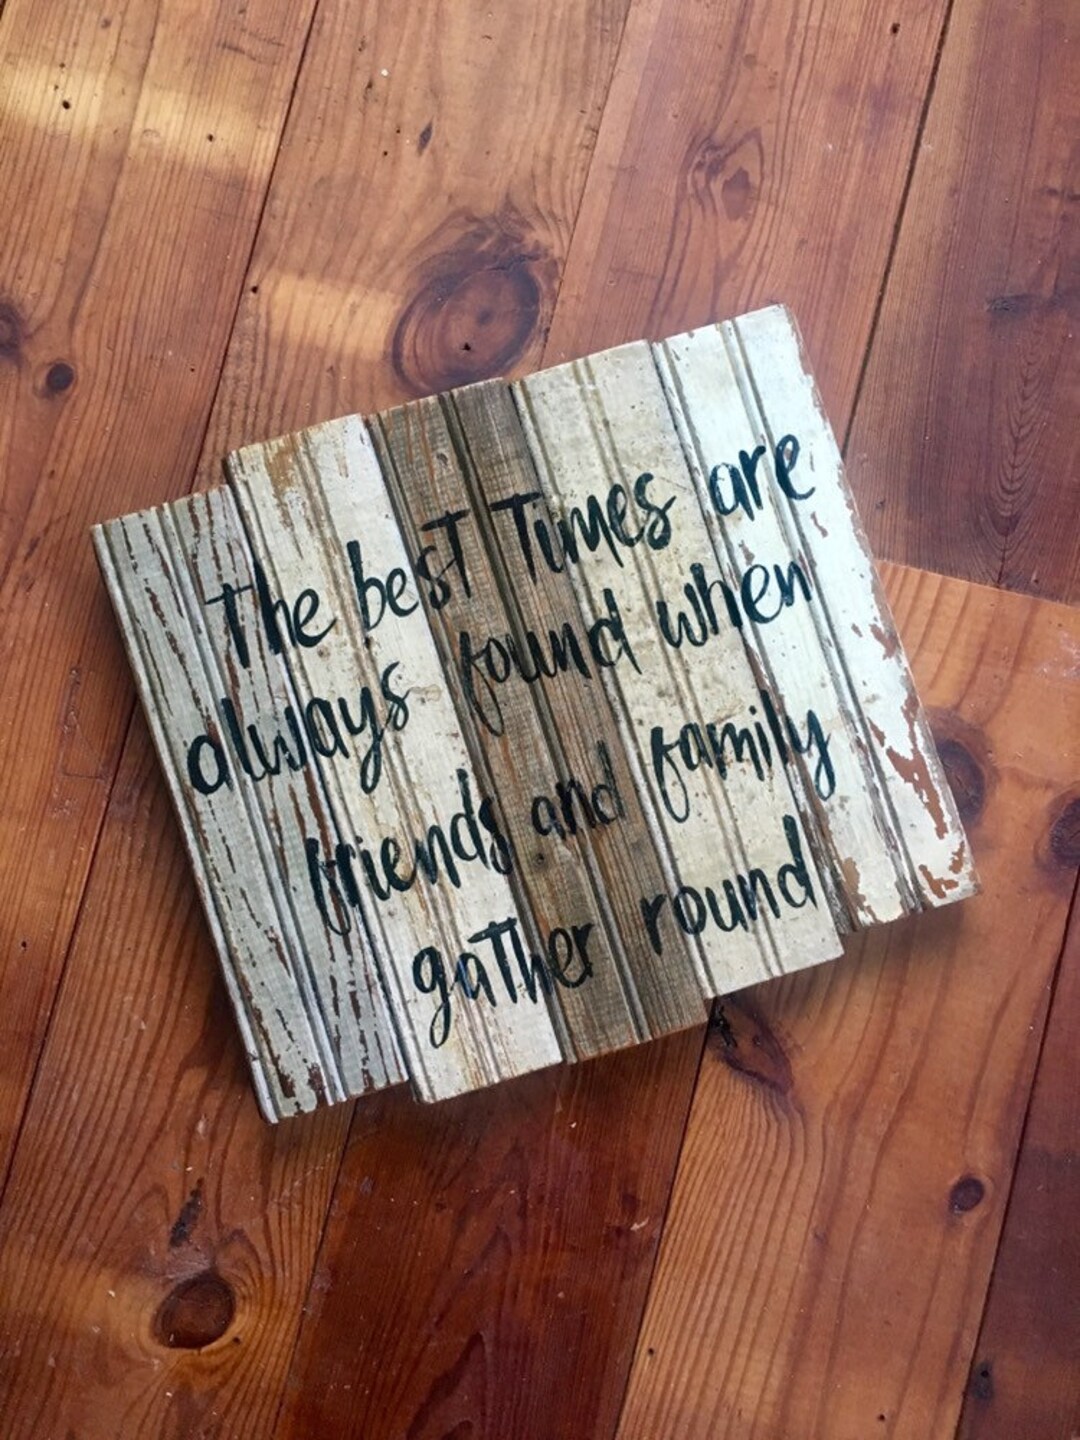 the best Times are
always found when
friends and family
gather round